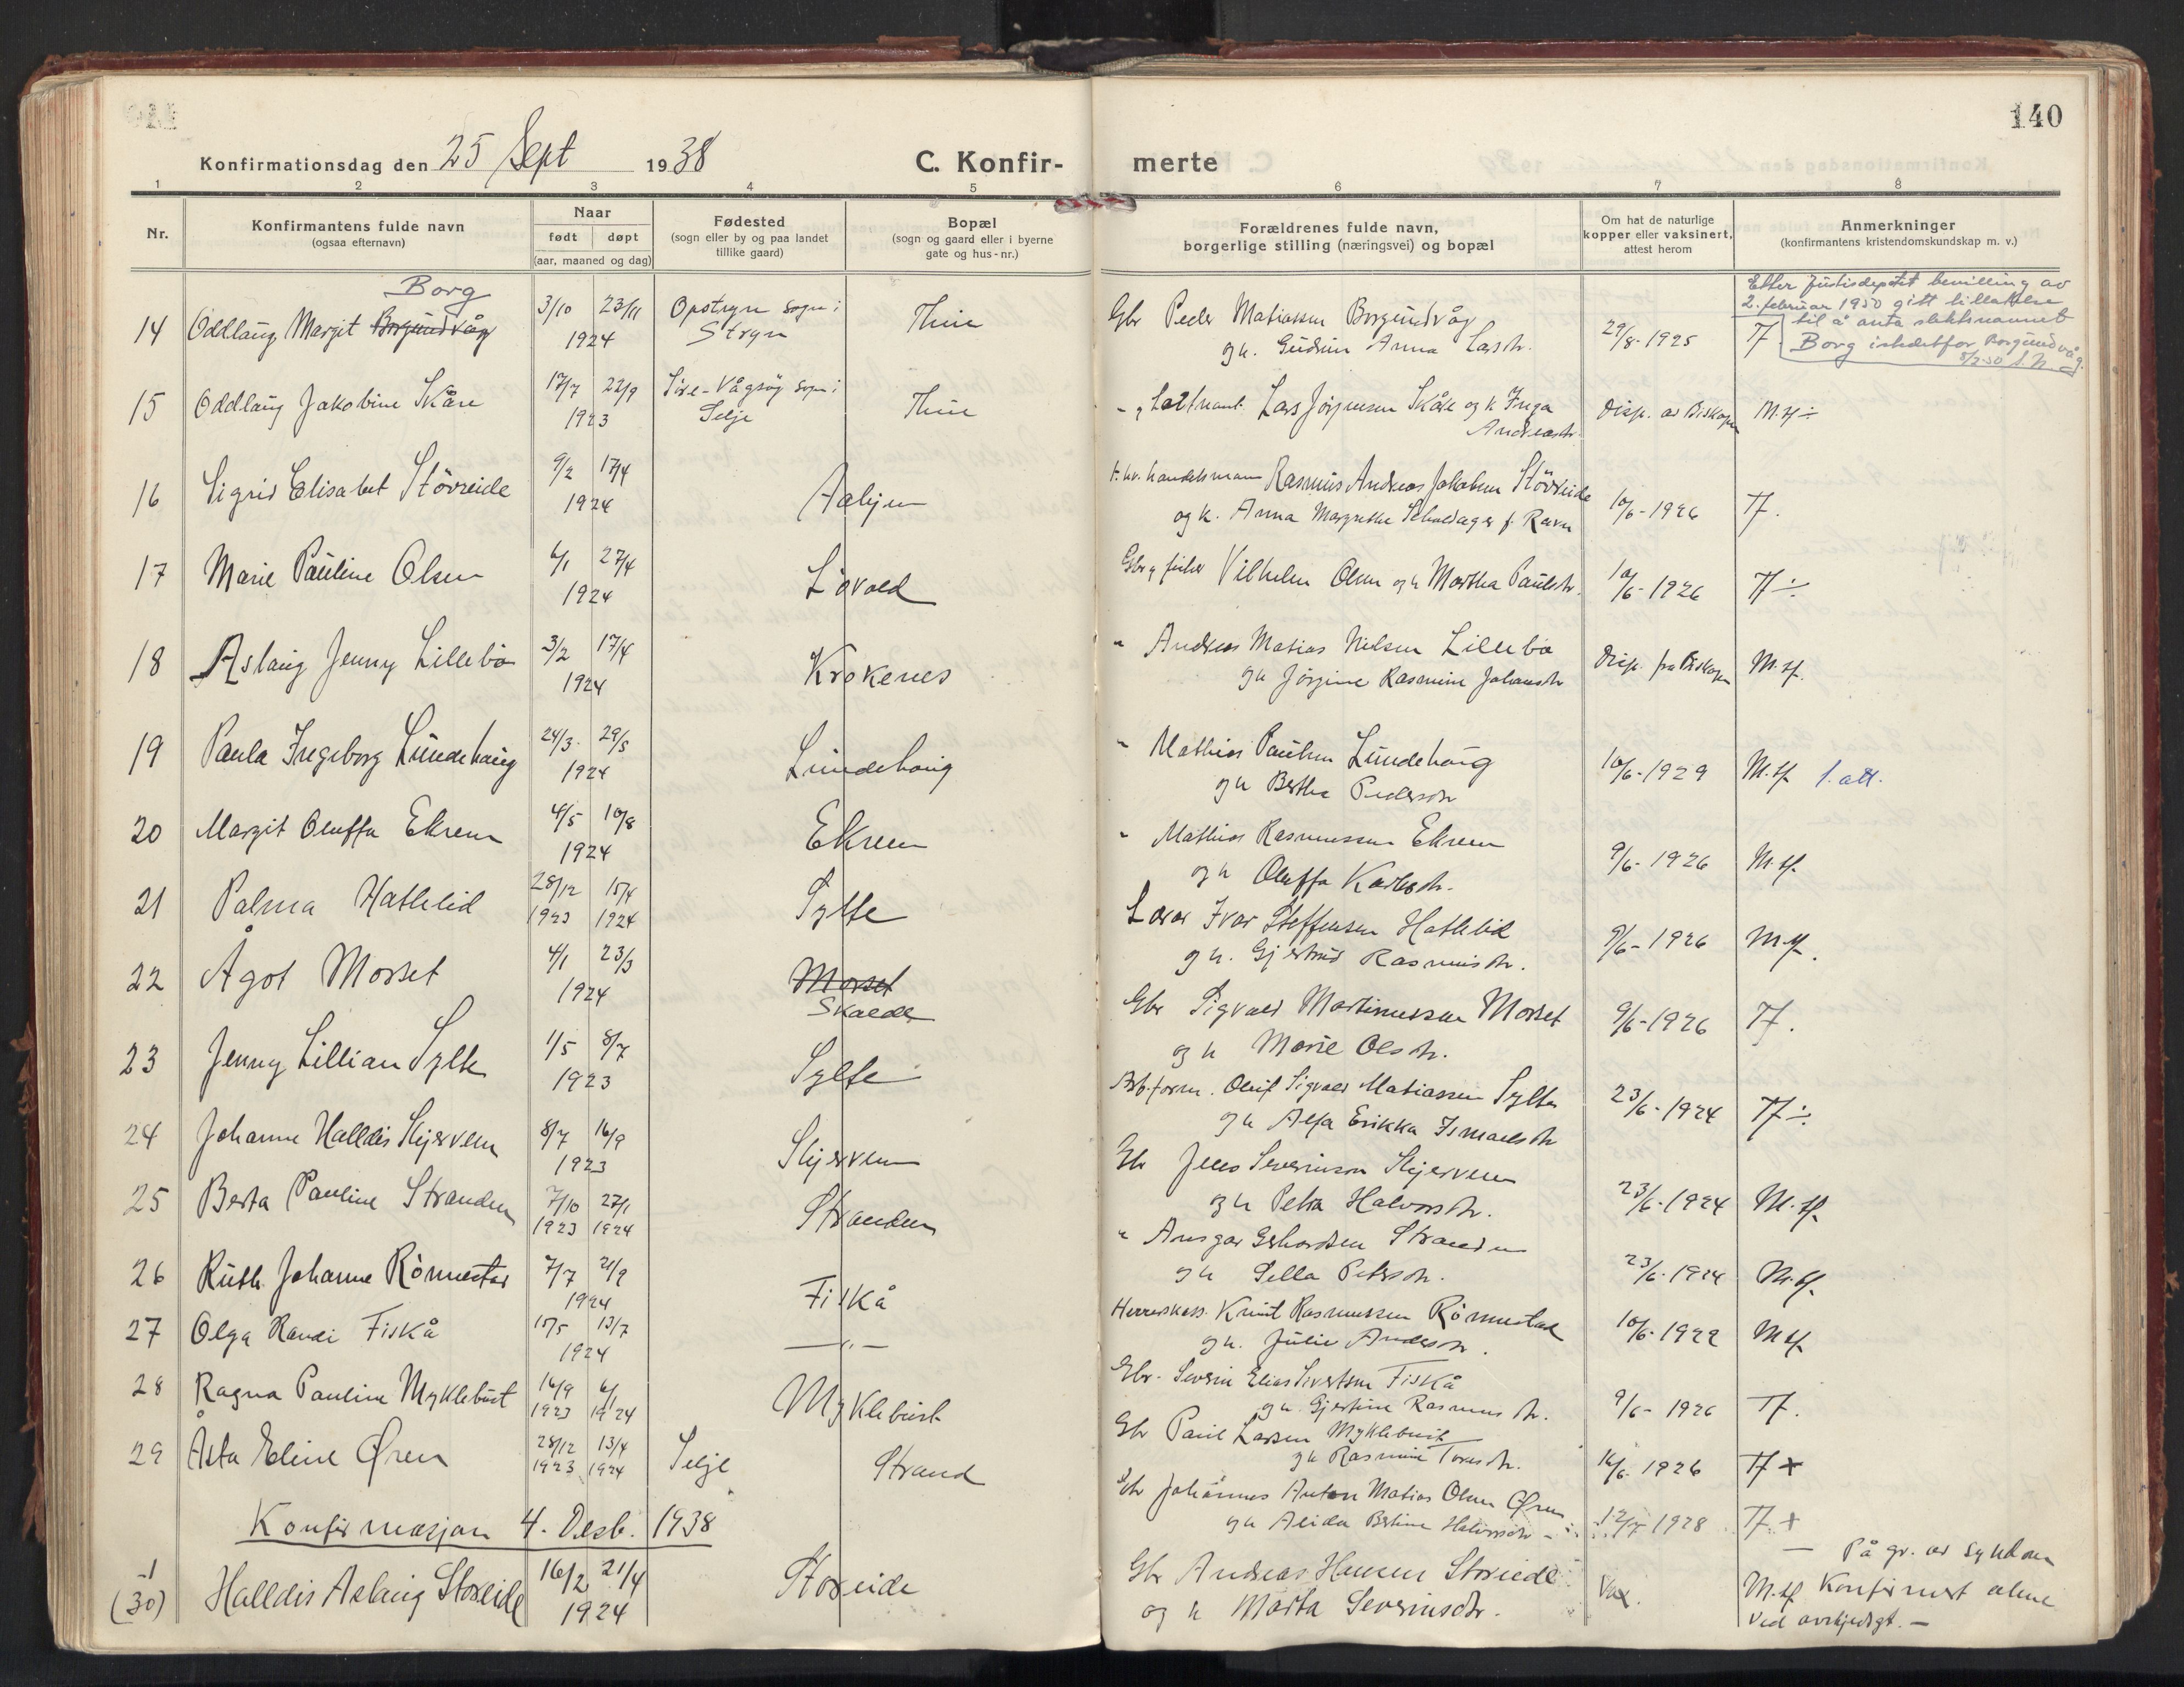 140
Konfirmationsdag den 25 Sept 1938
C. Konfir-
merte
1 2 3 4 5 6 7 8
Nr.
Konfirmantens fulde navn
(ogsaa efternavn)
Naar
født døpt
(aar, maaned og dag)
Fødested
(sogn eller by og paa landet
tillike gaard)
Bopæl
(sogn og gaard eller i byerne
gate og hus-nr.)
Forældrenes fulde navn,
borgerlige stilling (næringsvei) og bopæl
Om hat de naturlige
kopper eller vaksinert,
attest herom
Anmerkninger
(konfirmantens kristendomskundskap m. v.)
Borg
14 Oddlaug Margit Borgundvåg 3/10 23/11 1924 Opstryn sogn i Stryn
Gbr Peder Matiassen Borgundvåg
og h. Gudrun Anna Larsdr. 29/8-1925 Tf
Etter Justisdeptet bevilling av
2. februar 1950 gitt tillatelse
til å anta slektsnavnet
Borg istedetfor Borgundvåg.
15 Oddlaug Jakobine Skåre 17/7 22/9 1923 Søre-Vågsøy sogn i Selje
Lars Jørgensen Skåre og h Inga
Andreasdr. Disp. av Biskopen M.tf ÷
16 Sigrid Elisabet Störeide 9/2 17/4 1924 Aahjem
handelsmann Rasmus Andreas Jakobsen Störeide
og h. Anna Margrethe f. Ravn 10/6-1926 Tf.
17 Marie Pauline Olsen 6/1 27/4 1924 Løvold
Gbr og fisker Vilhelm Olsen og h Martha Paulsdr. 10/6-1926 Tf ÷
18 Aslaug Jenny Lillebø 3/2 17/4 1924 Krokenes
" Andreas Matias Nilsen Lillebø
og h Jørgine Rasmine Johansdr Disp. fra Biskopen M.tf.
19 Paula Ingeborg Lundehaug 24/3 29/5 1924 Lundehaug
" Mathias Paulsen Lundehaug
og h Berthe Pedersdr 10/6-1929 M.tf 1. att.
20 Margit Oluffa Ekrem 4/5 10/8 1924 Ekrem
" Mathias Rasmussen Ekrem
og h Oluffa Karlsdr. 9/6-1926 M.tf.
21 Palma Hatlelid 28/12 15/4 1923 1924 Sylte
Lærer Ivar Steffensen Hatlelid
og h. Gjertrud Rasmusdr. 9/6-1926 M.tf.
22 Ågot Morset 4/1 23/3 1924 Morset
Skaede
Gbr Sigvald Martinussen Morset
og h Marie Olsdr. 9/6-1926 Tf.
23 Jenny Lillian Sylte 1/5 8/7 1923 Sylte
Arb.form. Oluf Sigvald Matiassen Sylte
og h Alfa Erikka Ismaelsdr 23/6-1924 Tf ÷
24 Johanne Halldis Skjervem 8/7 16/9 1923 Skjervem
Gbr Jens Severinsen Skjervem
og h Petra Halvorsdr. 23/6-1924 M.tf.
25 Berta Pauline Stranden 7/10 27/1 1923 1924 Stranden
" Ansgar Gerhardsen Stranden
og h Sella Petersdr. 23/6-1924 M.tf.
26 Ruth Johanne Rönnestad 7/7 21/9 1924 Fiskå
Herredskass. Knut Rasmussen Rönnestad
og h. Julie Andersdr. 10/6-1929 M.tf
27 Olga Randi Fiskå 15/5 13/7 1924 — " —
Gbr. Severin Elias Sivertsen Fiskå
og h. Gjertine Rasmusdr. 9/6-1926 Tf.
28 Ragna Pauline Myklebust 16/9 6/1 1923 1924 Myklebust
Gbr Paul Larsen Myklebust
og h Rasmine Toresdr. 10/6-1926 Tf +
29 Åsta Eline Øren 28/12 13/4 1923 1924 Selje Strand
Gbr Johannes Anton Matias Olsen Øren
og h Alida Bertine Halvorsdr 12/7 1928 Tf. +
Konfirmasjon 4. Desb. 1938
1
(30) Halldis Aslaug Storeide 16/2 21/4 1924 Storeide
Gbr Andreas Hansen Storeide
og h Marta Severinsdr. Vax. M.tf
— På gr. av sykdom
Konfirmert alene
ved avskjedsgt. —